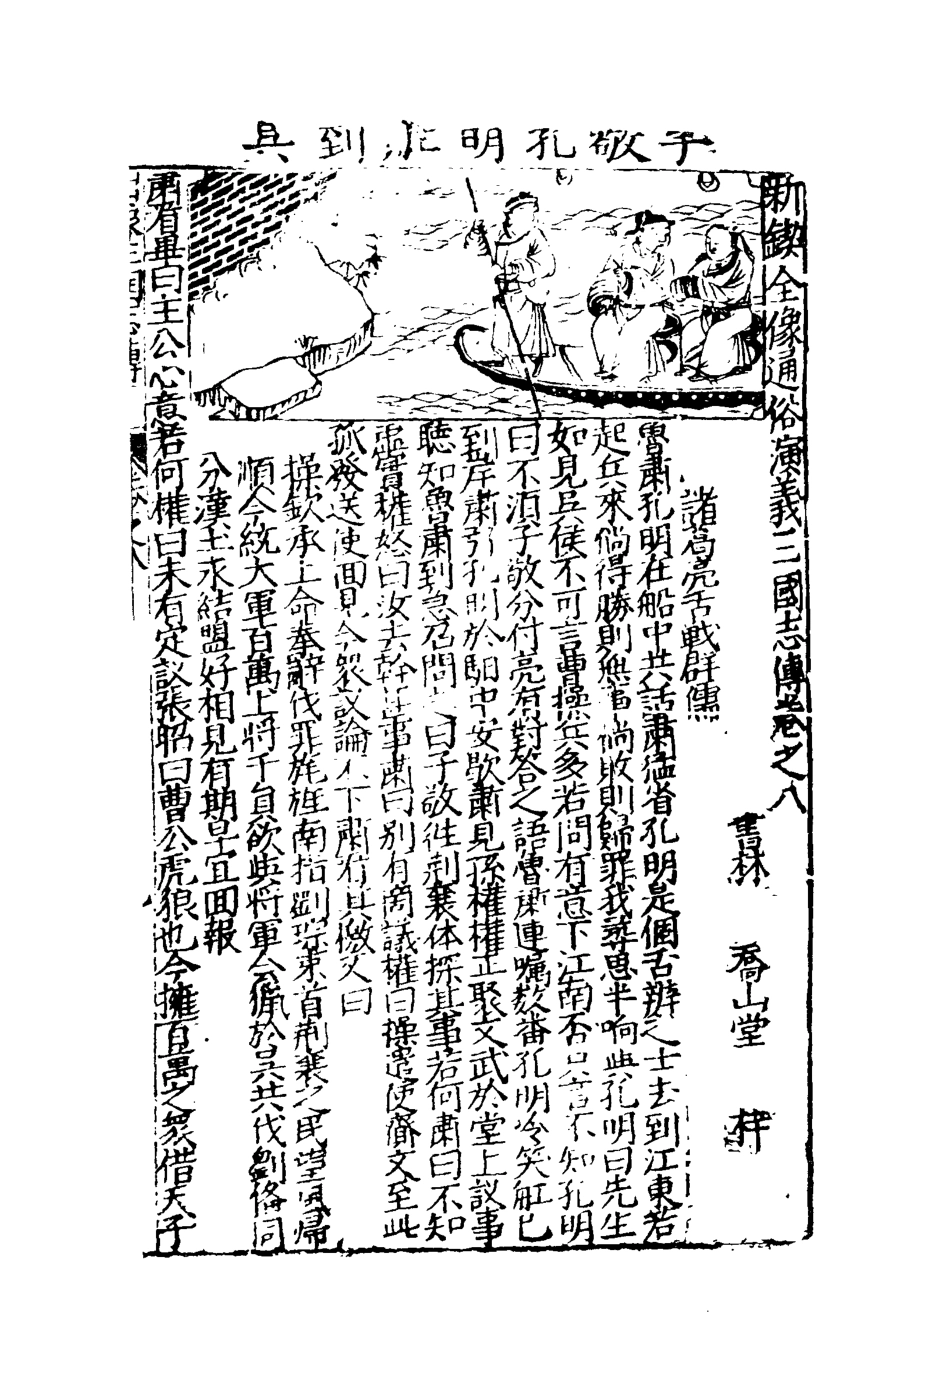 子敬孔明同到吳
新鍥全像通俗演義三國志傳卷之八
書林 喬山堂 梓
諸葛亮舌戰群儒
魯肅孔明在船中共話肅猛省孔明是個舌辨之士去到江東若
起兵來倘得勝則無事倘敗則歸罪我尋思半晌與孔明曰先生
如見吳侯不可言曹操兵多若問有意下江南否只言不知孔明
曰不須子敬分付亮有對答之語魯肅連囑數番孔明冷笑船已
到岸肅引孔明於馹中安歇肅見孫權權正聚文武於堂上議事
聽知魯肅到急召問之曰子敬往荆襄体探其事若何肅曰不知
虛實權怒曰汝去幹甚事肅曰別有商議權曰操遣使齎文至此
孤發送使回見今衆議論不下肅看其檄文曰
操欽承上命奉辭伐罪旄旌南指劉琮束首荊襄之民望風歸
順今統大軍百萬上將千員欲與將軍会獵於吳共伐劉俻同
分漢土永結盟好相見有期早宜回報
肅看畢曰主公心意若何權曰未有定議張昭曰曹公虎狼也今擁百萬之衆借天子